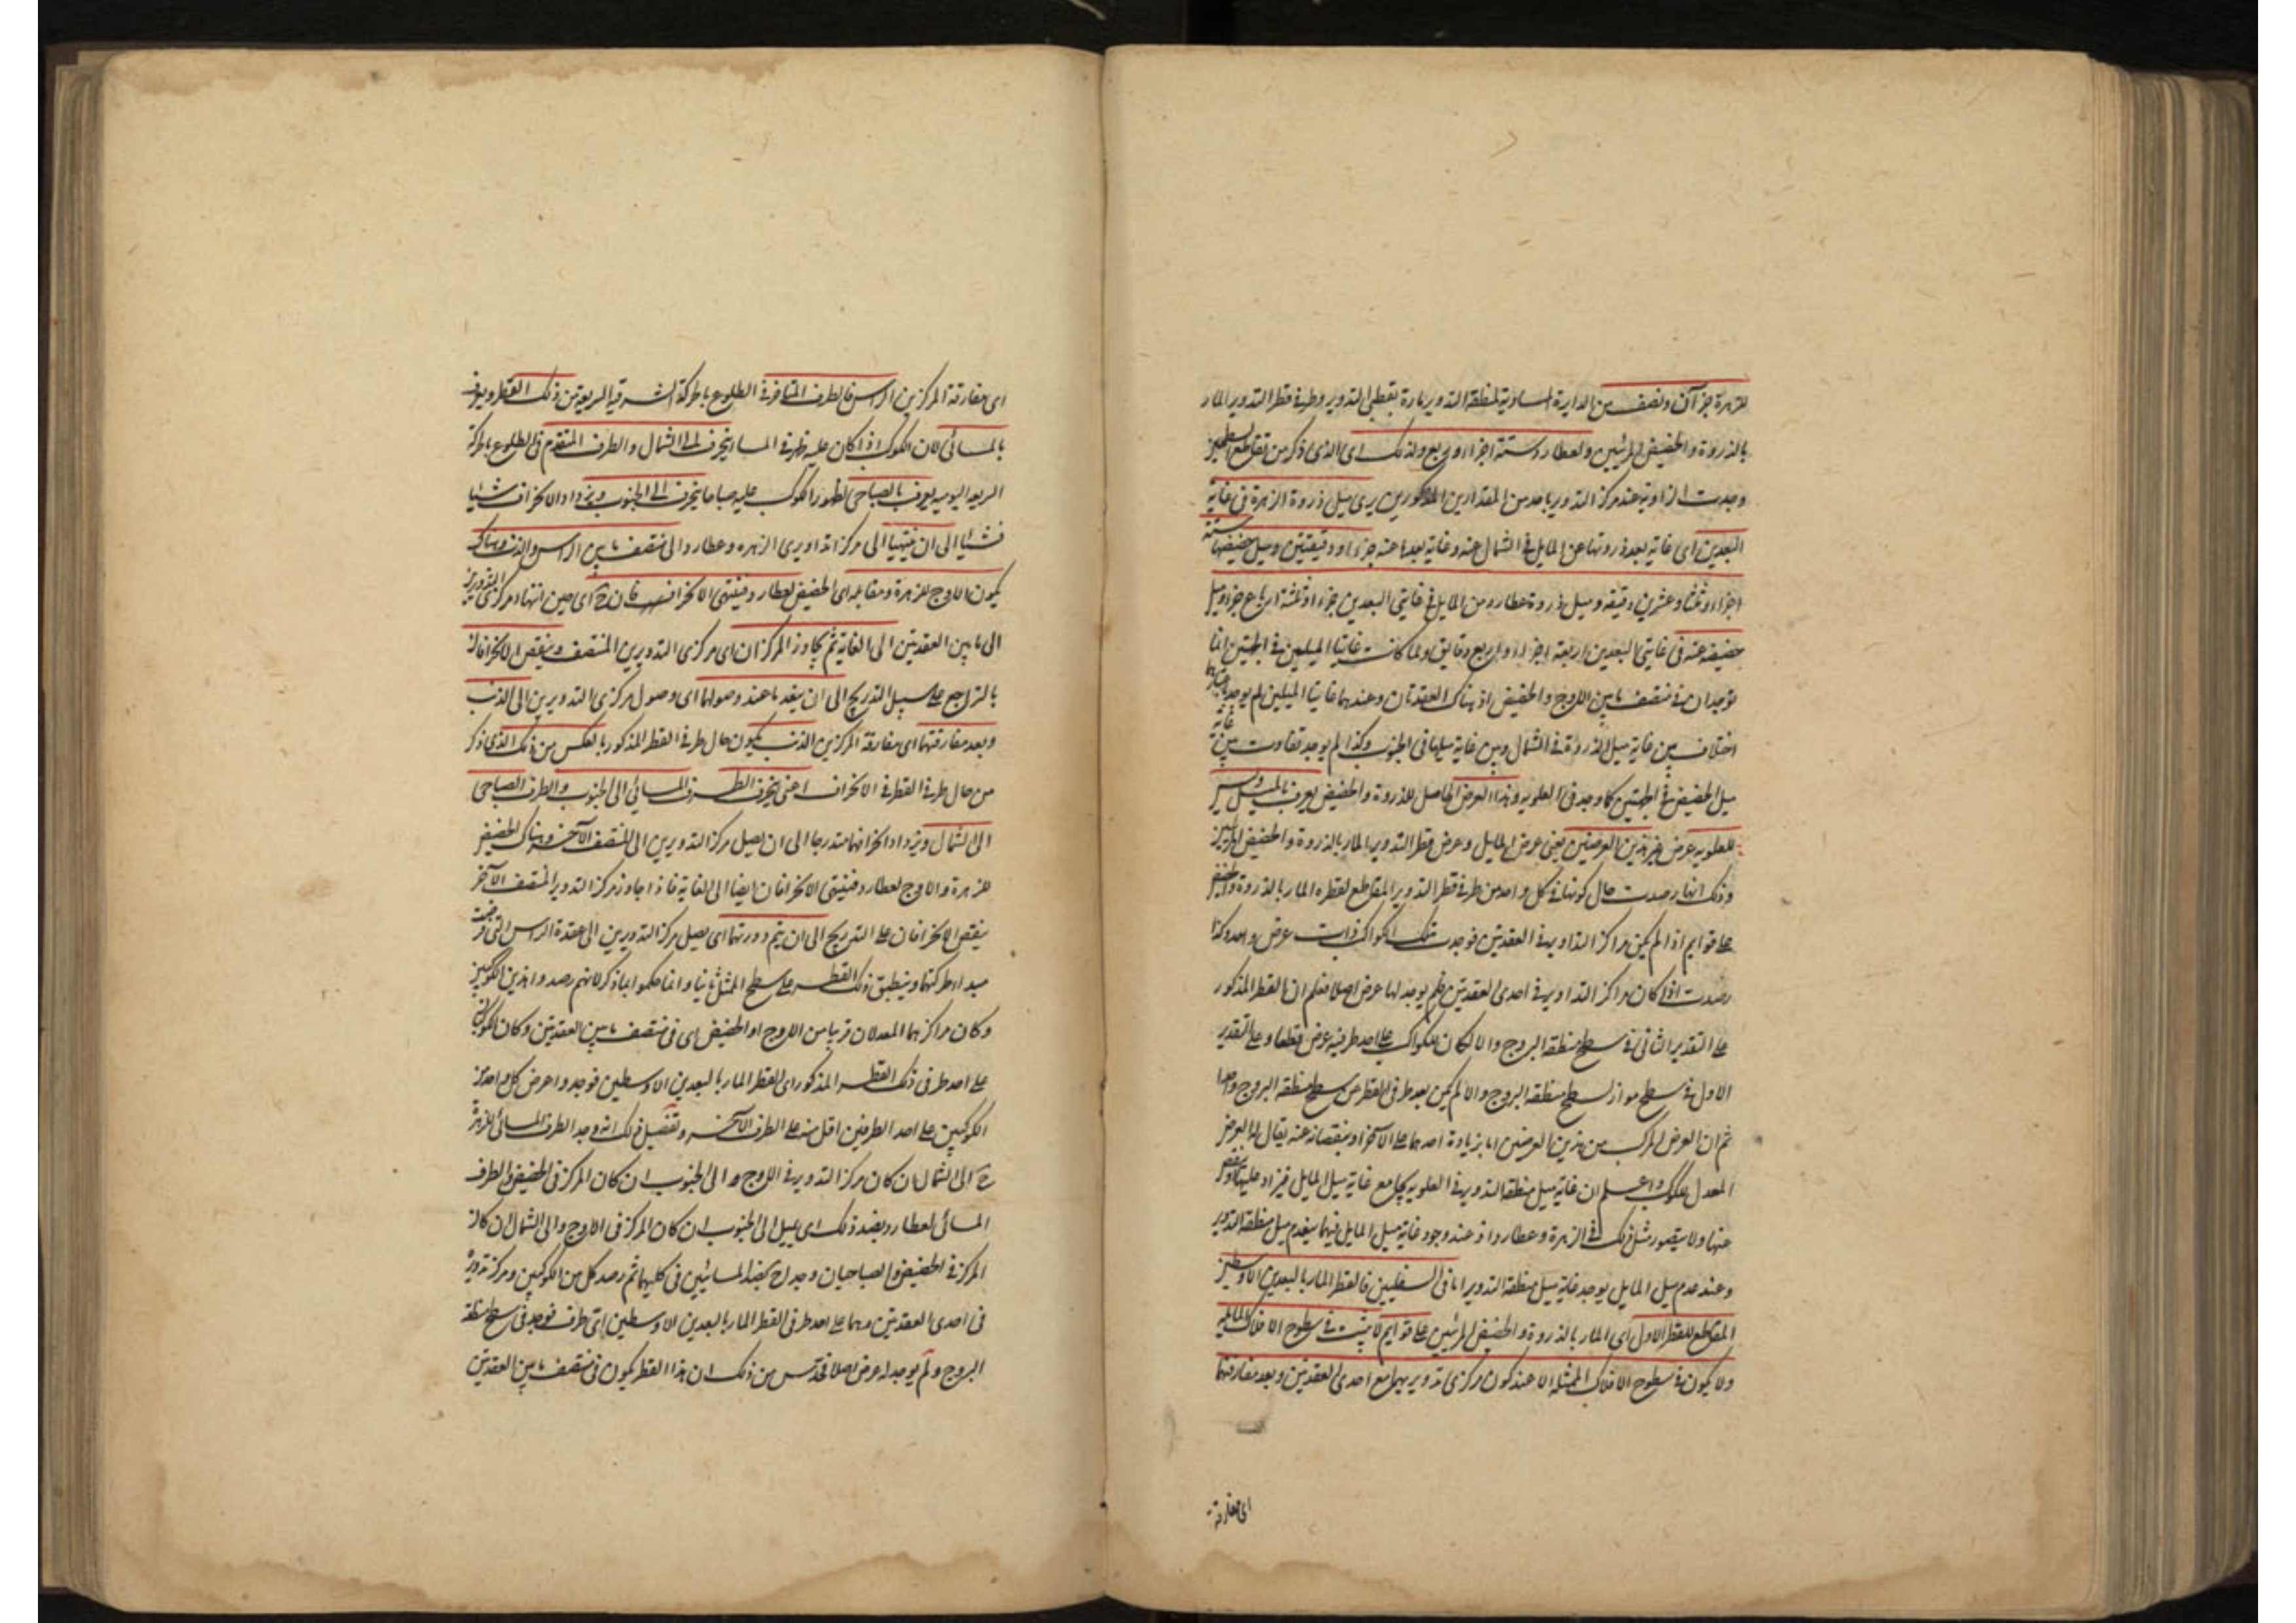 للزهرة جزآن ونصف من الدايرة المساوية لمنطقة التدوير مارة بقطبي التدوير وطرفي قطر التدوير المار
بالذروة والحضيض المرئيين ولعطارد ستة اجزاء وربع ولذلك اى الذى ذكر من تقاطع
وجدت الزاوية عند مركز التدوير باحد من المقدارين المذكورين يرى ميل ذروة الزهرة في غاية
البعدين اى غاية بعد ذروتها عن المايل في الشمال عنه وغاية بعدها عنه جزءا ودقيقتين وميل حضيضها ستة
اجزاء وعشرين دقيقه وميل ذروة عطارد من المايل في غايتي البعدين جزءا وثلثة ارباع جزء وميل
حضيضه عنه في غايتي البعدين اربعة اجزاء واربع دقايق ولما كانت غايتا الميلين في الجهتين انما
توجدان في منتصف ما بين الاوج والحضيض اذ هناك العقدتان وعندهما غايتا الميلين لم يوجد
اختلاف بين غاية ميل الذروة في الشمال وبين غاية ميلها في الجنوب وكذا لم يوجد تفاوت بين غاية
ميل الحضيض في الجهتين كما وجد في العلوية وهذا العرض الحاصل للذروة والحضيض يعرف بالميل وليس
للعلويه عرض غير هذين العرضين يعنى عرض المايل وعرض قطر التدوير المار بالذروة والحضيض المرئيين
وذلك انها رصدت حال كونها في كل واحد من طرفي قطر التدوير المقاطع لقطره المار بالذروة والحضيض
على قوايم اذا لم يكن مراكز التداوير في العقدتين فوجدت تلك الكواكب ذات عرض واحد وكذا
رصدت اذا كان مراكز التداوير في احدى العقدتين فلم يوجد لها عرض اصلا فعلم ان القطر المذكور
على التقدير الثانى في سطح منطقة البروج والا لكان للكواكب على احد طرفيه عرض قطعا وعلى التقدير
الاول في سطح مواز لسطح منطقة البروج والا لم يكن بعد طرفي القطر عن سطح منطقة البروج واحدا
ثم ان العرض المركب من هذين العرضين اما بزيادة احدهما على الآخر او بنقصانه عنه يقال لها العرض
المعدل للكوكب واعلم ان غاية ميل منطقة التدوير في العلويه يجامع غاية ميل المايل فيزاد عليها او ينقص
عنها ولا يتصور مثل ذلك في الزهرة وعطارد اذ عند وجود غاية ميل المايل فيهما ينعدم ميل منطقة التدوير
وعند عدم ميل المايل يوجد غاية ميل منطقة التدوير اما في السفليين فالقطر المار بالبعدين الاوسطين
المقاطع للقطر الاول اى المار بالذروة والحضيض المرئيين على قوايم لا يثبت في سطوح الافلاك المايلة
ولا يكون في سطوح الافلاك الممثلة الا عند كون مركزى تدويريهما مع احدى العقدتين وبعد مفارقتهما
اى مفارقة
اى مفارقة المركزين الراس فالطرف المتاخر في الطلوع بالحركة الشرقية السريعة من ذلك القطر ويعرف
بالمسائى لان الكوكب اذا كان عليه ظهر في المسا ينحرف الى الشمال والطرف المتقدم في الطلوع بالحركة
السريعه اليوميه يعرف بالصباحى لظهور الكوكب عليه صباحا ينحرف الى الجنوب ويزداد الانحراف شيئا
فشيئا الى ان ينتهيا الى مركز تداويرى الزهره وعطارد الى منتصف ما بين الراس والذنب وهناك
يكون الاوج للزهرة ومقابله اى الحضيض لعطارد فينتهى الانحراف اى حين انتهاء مركزى التدويرين
الى ما بين العقدتين الى الغاية ثم يجاوز المركزان اى مركزى التدويرين المنتصف وينقص الانحرافان
بالتراجع على سبيل التدريج الى ان ينعدما عند وصولهما اى وصول مركزى التدويرين الى الذنب
وبعد مفارقتهما اى مفارقة المركزين الذنب يكون حال طرفي القطر المذكور بالعكس من ذلك الذى ذكر
من حال طرفي القطر في الانحراف اعنى ينحرف الطرف المسائي الى الجنوب والطرف الصباحى
الى الشمال ويزداد انحرافهما متدرجا الى ان يصل مركز التدويرين الى المنتصف الآخر وهناك الحضيض
للزهرة والاوج لعطارد فينتهى الانحرافان ايضا الى الغاية فاذا جاوز مركز التدوير المنتصف الآخر
ينقص الانحرافان على التدريج الى ان يتم دورتهما اى يصل مركز التدويرين الى عقدة الراس التى فرضت
مبدا لحركتهما وينطبق ذلك القطر على سطح الممثل ثانيا وانما حكموا بما ذكر لانهم رصدوا هذين الكوكبين
وكان مراكزهما المعدلان قريبا من الاوج او الحضيض اى في منتصف ما بين العقدتين وكان الكوكبان
على احد طرفى ذلك القطر المذكور اى القطر المار بالبعدين الاوسطين فوجدوا عرض كل واحد من
الكوكبين على احد الطرفين اقل منه على الطرف الآخر وتفصيل ذلك انه وجد الطرف المسائى للزهرة
ح الى الشمال ان كان مركز التدوير في الاوج والى الجنوب ان كان المركز في الحضيض والطرف
المسائى لعطارد بضد ذلك اى يميل الى الجنوب ان كان المركز في الاوج والى الشمال ان كان
المركز في الحضيض والصباحيان وجدا ح بضد المسائيين في كليهما ثم رصد كل من الكوكبين ومركز تدويره
في احدى العقدتين وهما على احد طرفى القطر المار بالبعدين الاوسطين اى طرف فوجد في سطح منطقة
البروج ولم يوجد له عرض اصلا فحدس من ذلك ان هذا القطر يكون في منتصف ما بين العقدتين